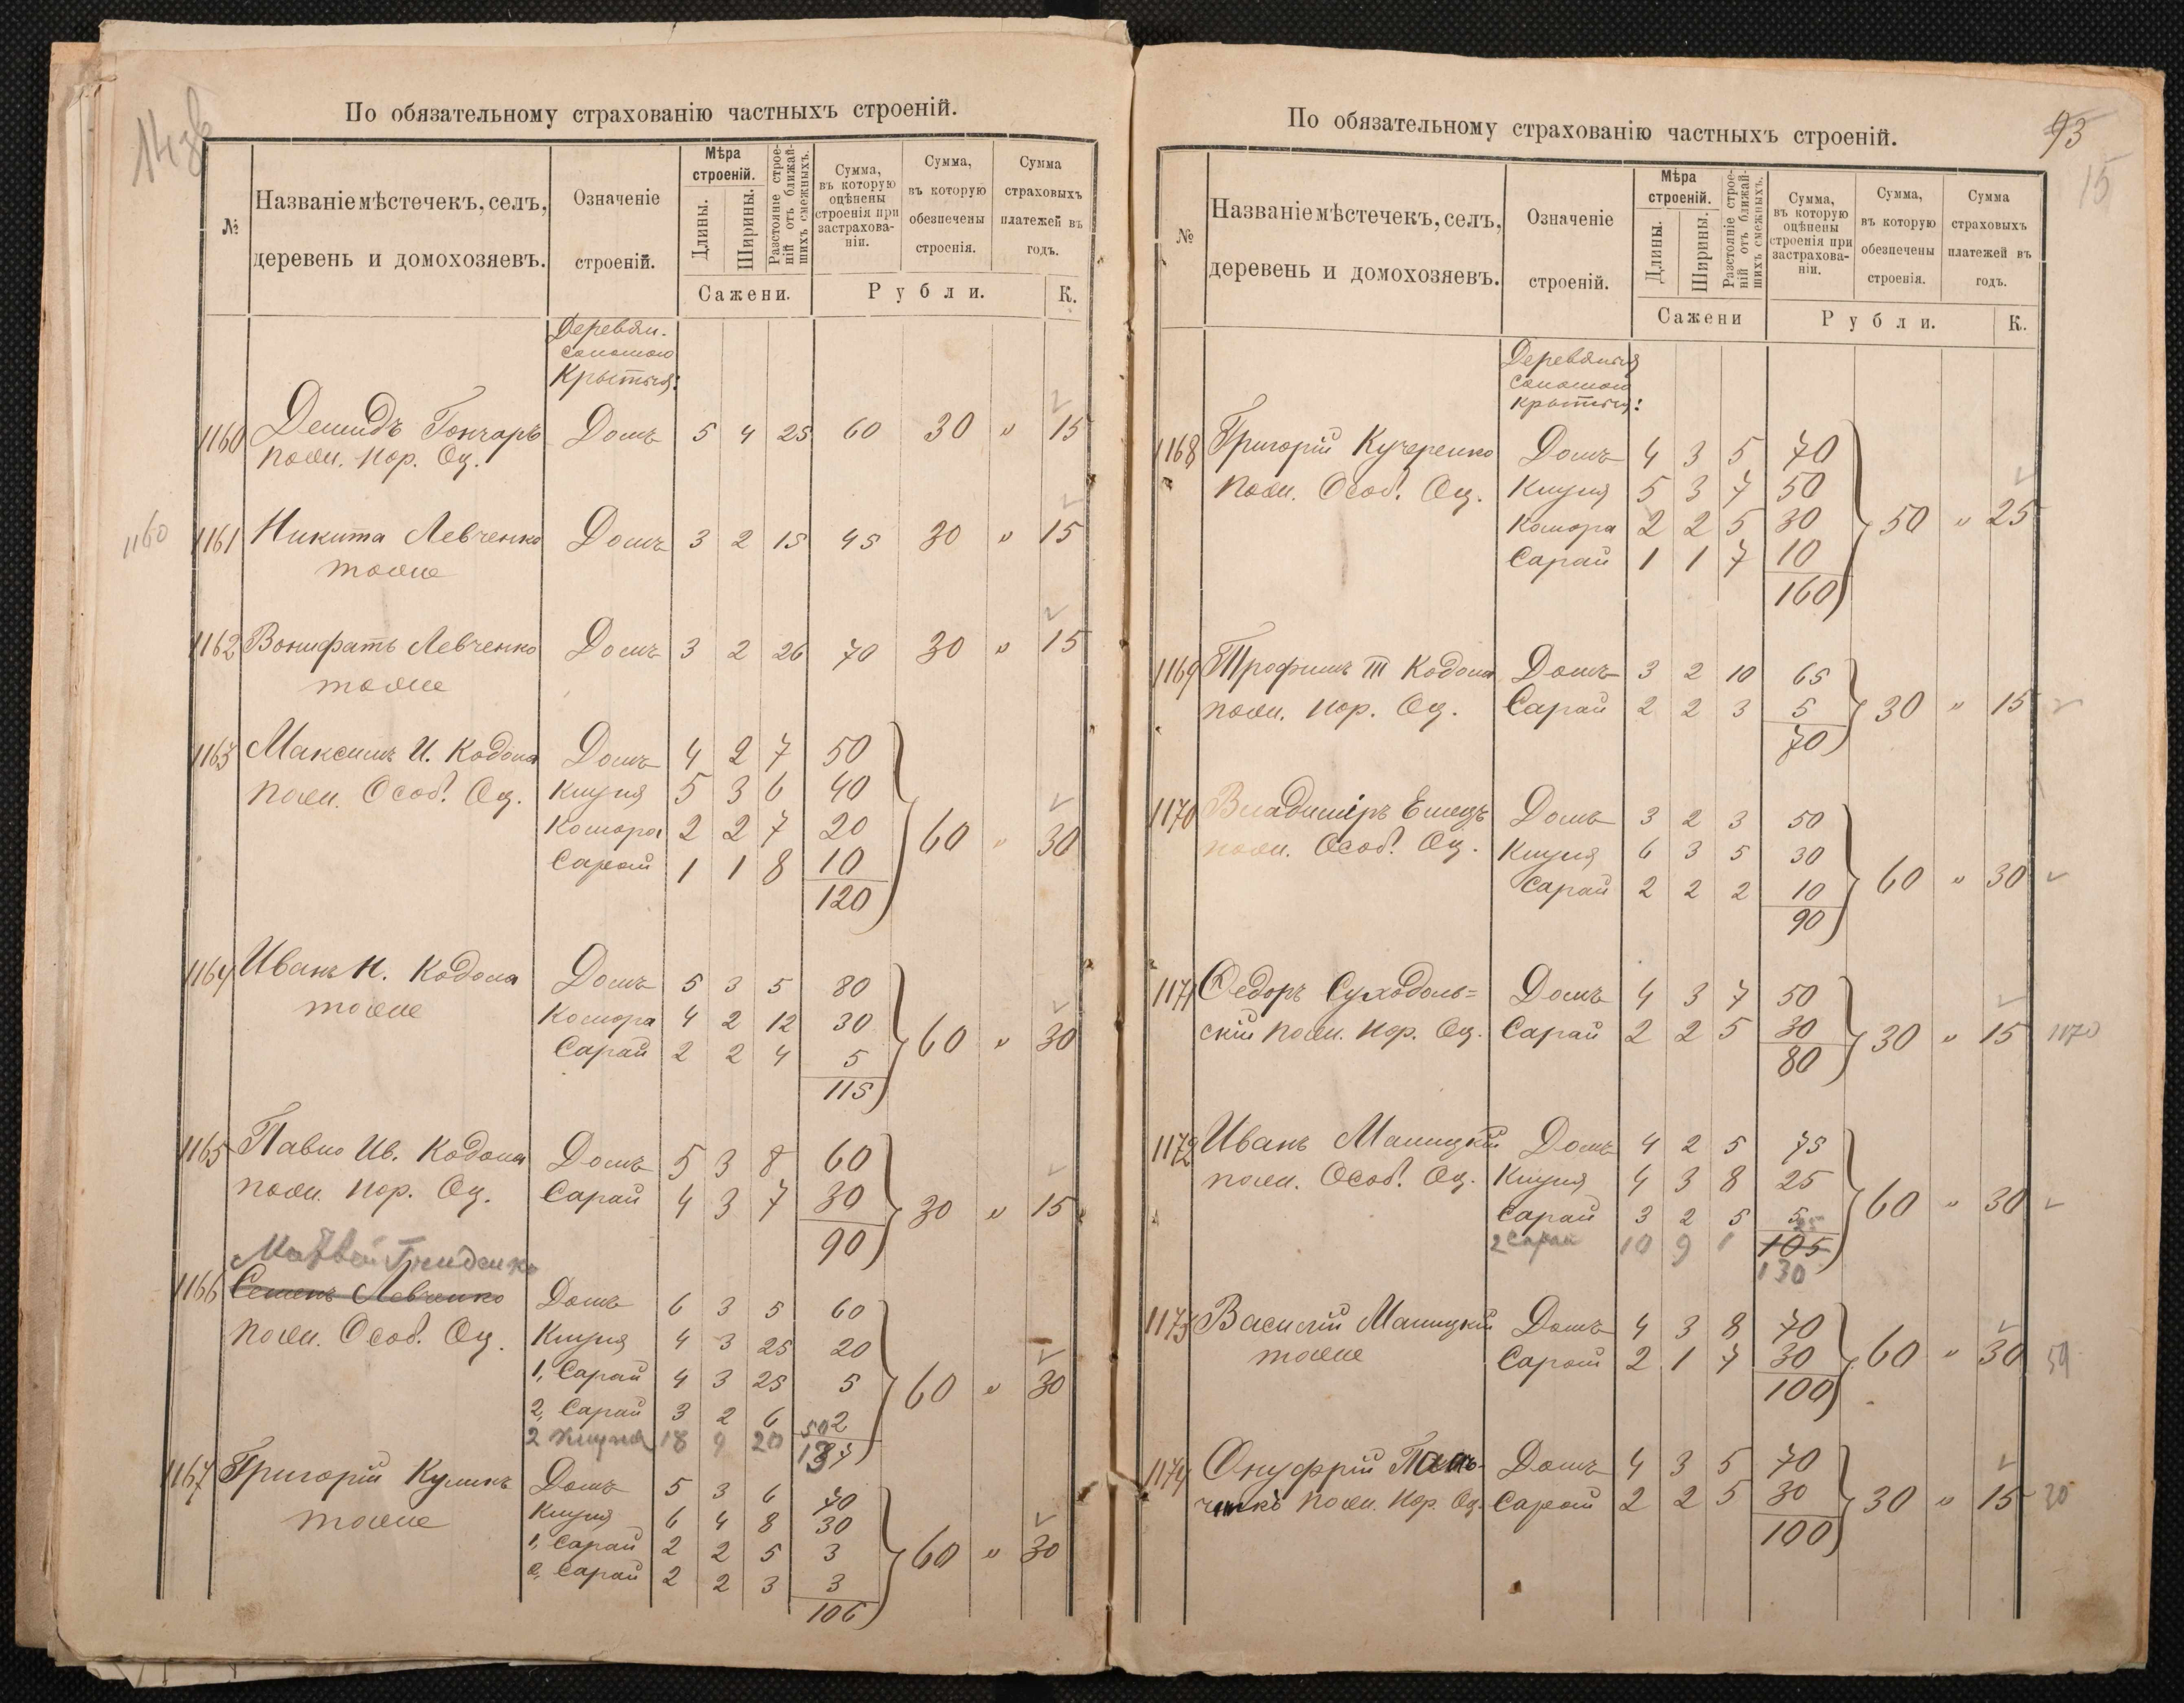 По обязательному страхованію частныхъ строеній.
№
Названіе мѣстечекъ, селъ,
деревень и домохозяевъ.
Означеніе
строеній.
Мѣра
строеній.
Длины.
Ширины.
Разстояніе строе-
ній отъ ближай-
шихъ смежныхъ.
Сумма,
въ которую
оцѣнены
строенія при
застрахова-
ніи.
Сумма,
въ которую
обезпечены
строенія.
Сумма
страховыхъ
платежей въ
годъ.
Сажени.
Рубли.
К.
Деревян.
соломою
крытыя:
1160 Демидъ Гончаръ Домъ 5 4 25 60 30 " 15
полн. нор. Оц.
1160
1161 Никита Левченко Домъ 3 2 15 45 30 " 15
тоже
1162 Вонифатъ Левченко Домъ 3 2 26 70 30 " 15
тоже
1163 Максимъ И. Кодола Домъ 4 2 7 50
полн. Особ. Оц. Клуня 5 3 6 40
Комора 2 2 7 20 60 " 30
Сарай 1 1 8 10
120
1164 Иванъ Н. Кодола Домъ 5 3 5 80
тоже Комора 4 2 12 30
Сарай 2 2 4 5 60 " 30
115
1165 Павло Ив. Кодола Домъ 5 3 8 60
полн. нор. Оц. Сарай 4 3 7 30 30 " 15
90
1166 Семенъ Левченко Домъ 6 3 5 60
полн. Особ. Оц. Клуня 4 3 25 20
1, Сарай 4 3 25 5 60 " 30
2, Сарай 3 2 6 2
2 Клуня 18 9 20 50
1167 Григорій Куликъ Домъ 5 3 6 70
тоже Клуня 6 4 8 30
1, Сарай 2 2 5 3 60 " 30
2, Сарай 2 2 3 3
106
93
15
По обязательному страхованію частныхъ строеній.
№
Названіе мѣстечекъ, селъ,
деревень и домохозяевъ.
Означеніе
строеній.
Мѣра
строеній.
Длины.
Ширины.
Разстояніе строе-
ній отъ ближай-
шихъ смежныхъ.
Сумма,
въ которую
оцѣнены
строенія при
застрахова-
ніи.
Сумма,
въ которую
обезпечены
строенія.
Сумма
страховыхъ
платежей въ
годъ.
Сажени
Рубли.
К.
Деревяныя
соломою
крытыя:
1168 Григорій Кучеренко Домъ 4 3 5 70
полн. Особ. Оц. Клуня 5 3 7 50
Комора 2 2 5 30 50 " 25
Сарай 1 1 7 10
160
1169 Трофимъ III Кодола Домъ 3 2 10 65
полн. нор. Оц. Сарай 2 2 3 5 30 " 15
70
1170 Владиміръ Емецъ Домъ 3 2 3 50
полн. Особ. Оц. Клуня 6 3 5 30
Сарай 2 2 2 10 60 " 30
90
1171 Федоръ Суходоль=
Домъ 4 3 7 50
скій полн. нор. Оц. Сарай 2 2 5 30 30 " 15 1170
80
1172 Иванъ Малицкій Домъ 4 2 5 75
полн. Особ. Оц. Клуня 4 3 8 25
Сарай 3 2 5 5 60 " 30
2 Сарай 10 9 1 25
105
130
1173 Василій Малицкій Домъ 4 3 8 70
тоже Сарай 2 1 7 30 60 " 30
100
1174 Онуфрій Домъ 4 3 5 70
полн. нор. Оц. Сарай 2 2 5 30 30 " 15 30
100